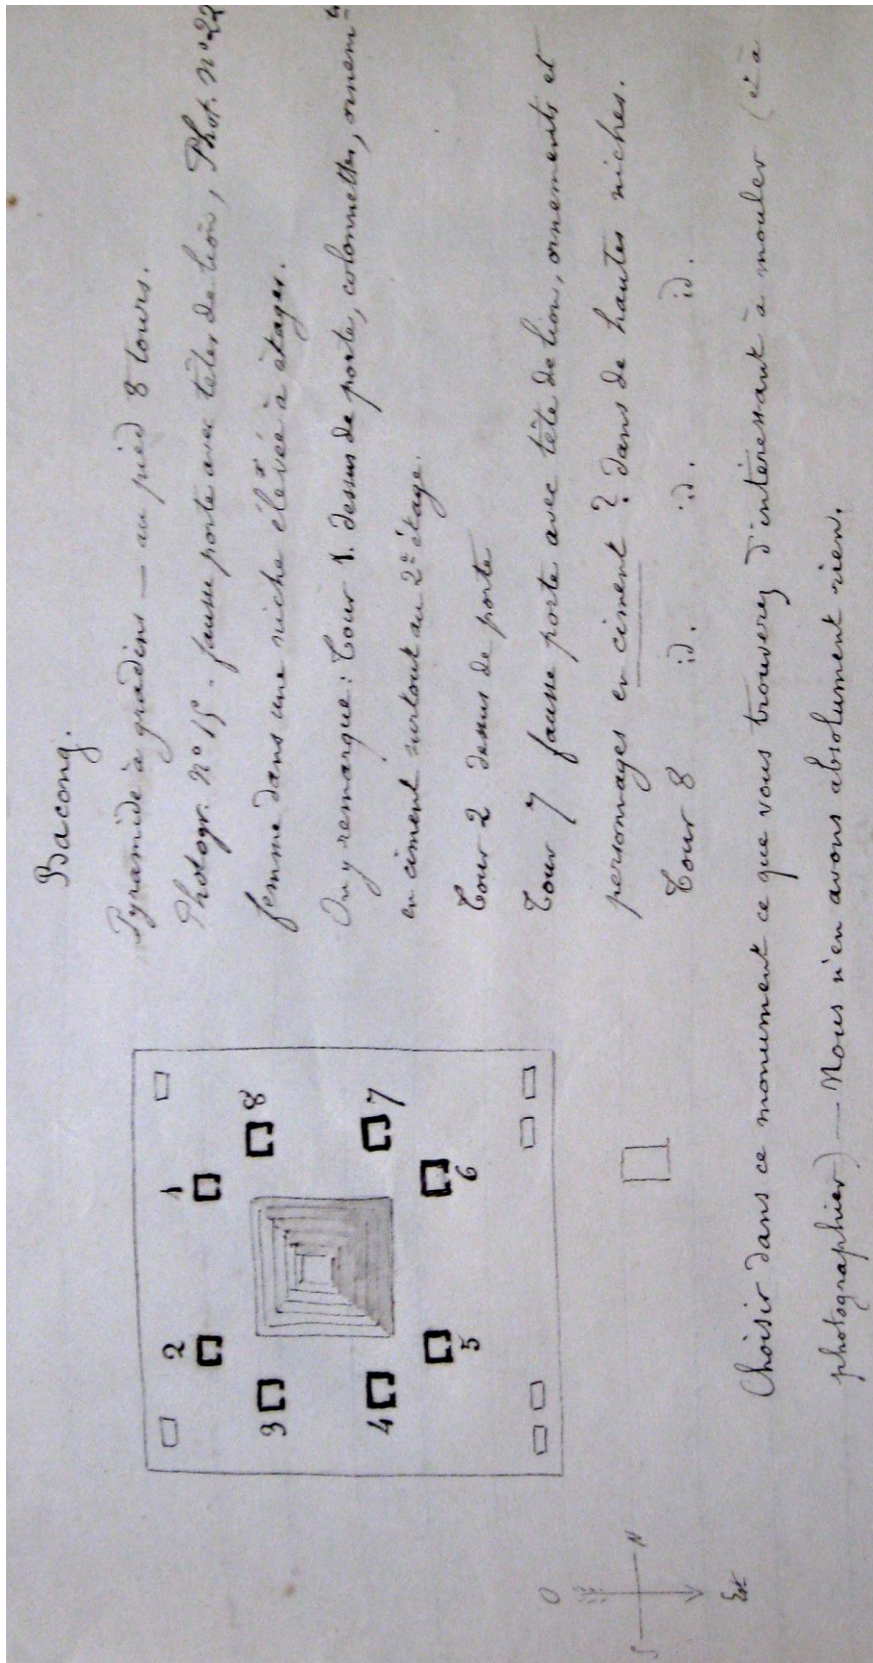 Bacong.
Pyramide à gradins — au pied 8 tours.
Photogr. n° 15 - fausse porte avec têtes de lion, Phot. n° 22
femme dans une niche élevée à étages.
On y remarque : Tour 1. dessus de porte, colonnettes, ornemts
en ciment surtout au 2e étage.
Tour 2 dessus de porte
Tour 7 fausse porte avec tête de lion, ornements et
personnages en ciment ? dans de hautes niches.
Tour 8 id. id. id.
1
2
3
4
5
6
7
8
O
S N
Est
Choisir dans ce monument ce que vous trouverez d'intéressant à mouler (et à
photographier) — Nous n'en avons absolument rien.